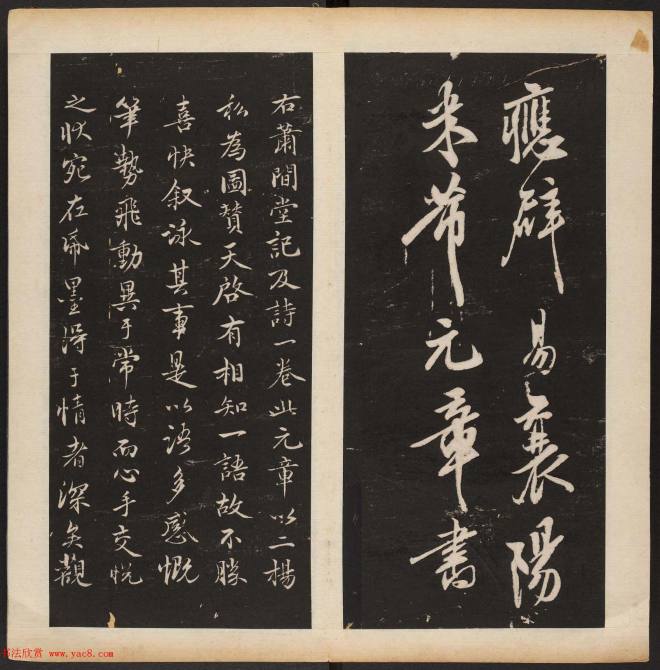 應辟易襄陽
米芾元章書
右蕭閒堂記及詩一卷此元章以二楊
私為圖贊天啓有相知一語故不勝
喜快叙詠其事是以語多感慨
筆勢飛動異于常時而心手交悅
之狀宛在帋墨得于情者深矣觀
书法欣赏 www.yac8.com